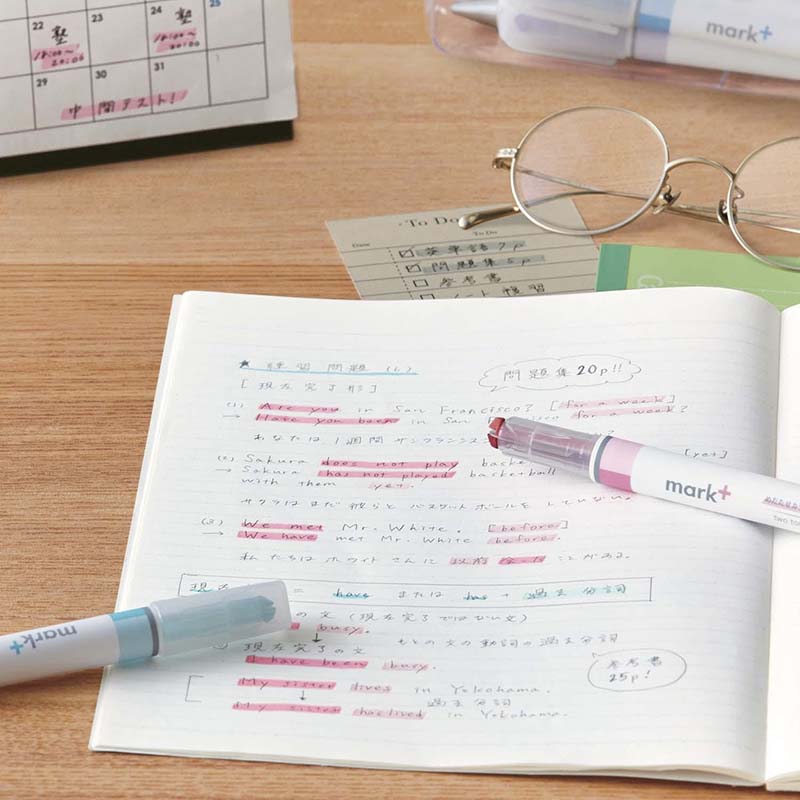 22
塾
18:00~
20:00
23
24
塾
18:00~
20:00
25
29
30
31
中間テスト!
mark+
To Do
Date
To Do
英単語7p
問題集5p
参考書
ノート復習
★ 練習問題 (6)
[現在完了形]
問題集20p!!
(1) Are you in San Francisco? [for a week]
→ Have you been in San for a week?
あなたは1週間サンフランシス
(2) Sakura does not play baske [yet]
→ Sakura has not played basketball
with them yet.
サクラはまだ彼らとバスケットボールをしていない。
(3) We met Mr. White. [before]
→ We have met Mr. White before.
私たちはホワイトさんに以前会ったことがある。
現在 = have または has + 過去分詞
の文 (現在完了ではない文)
busy.
↓ もとの文の動詞の過去分詞
現在完了の文
I have been busy.
参考書
25p!
My sister lives in Yokohama.
↓ 過去分詞
My sister has lived in Yokohama.
mark+
TWO TO
mark+